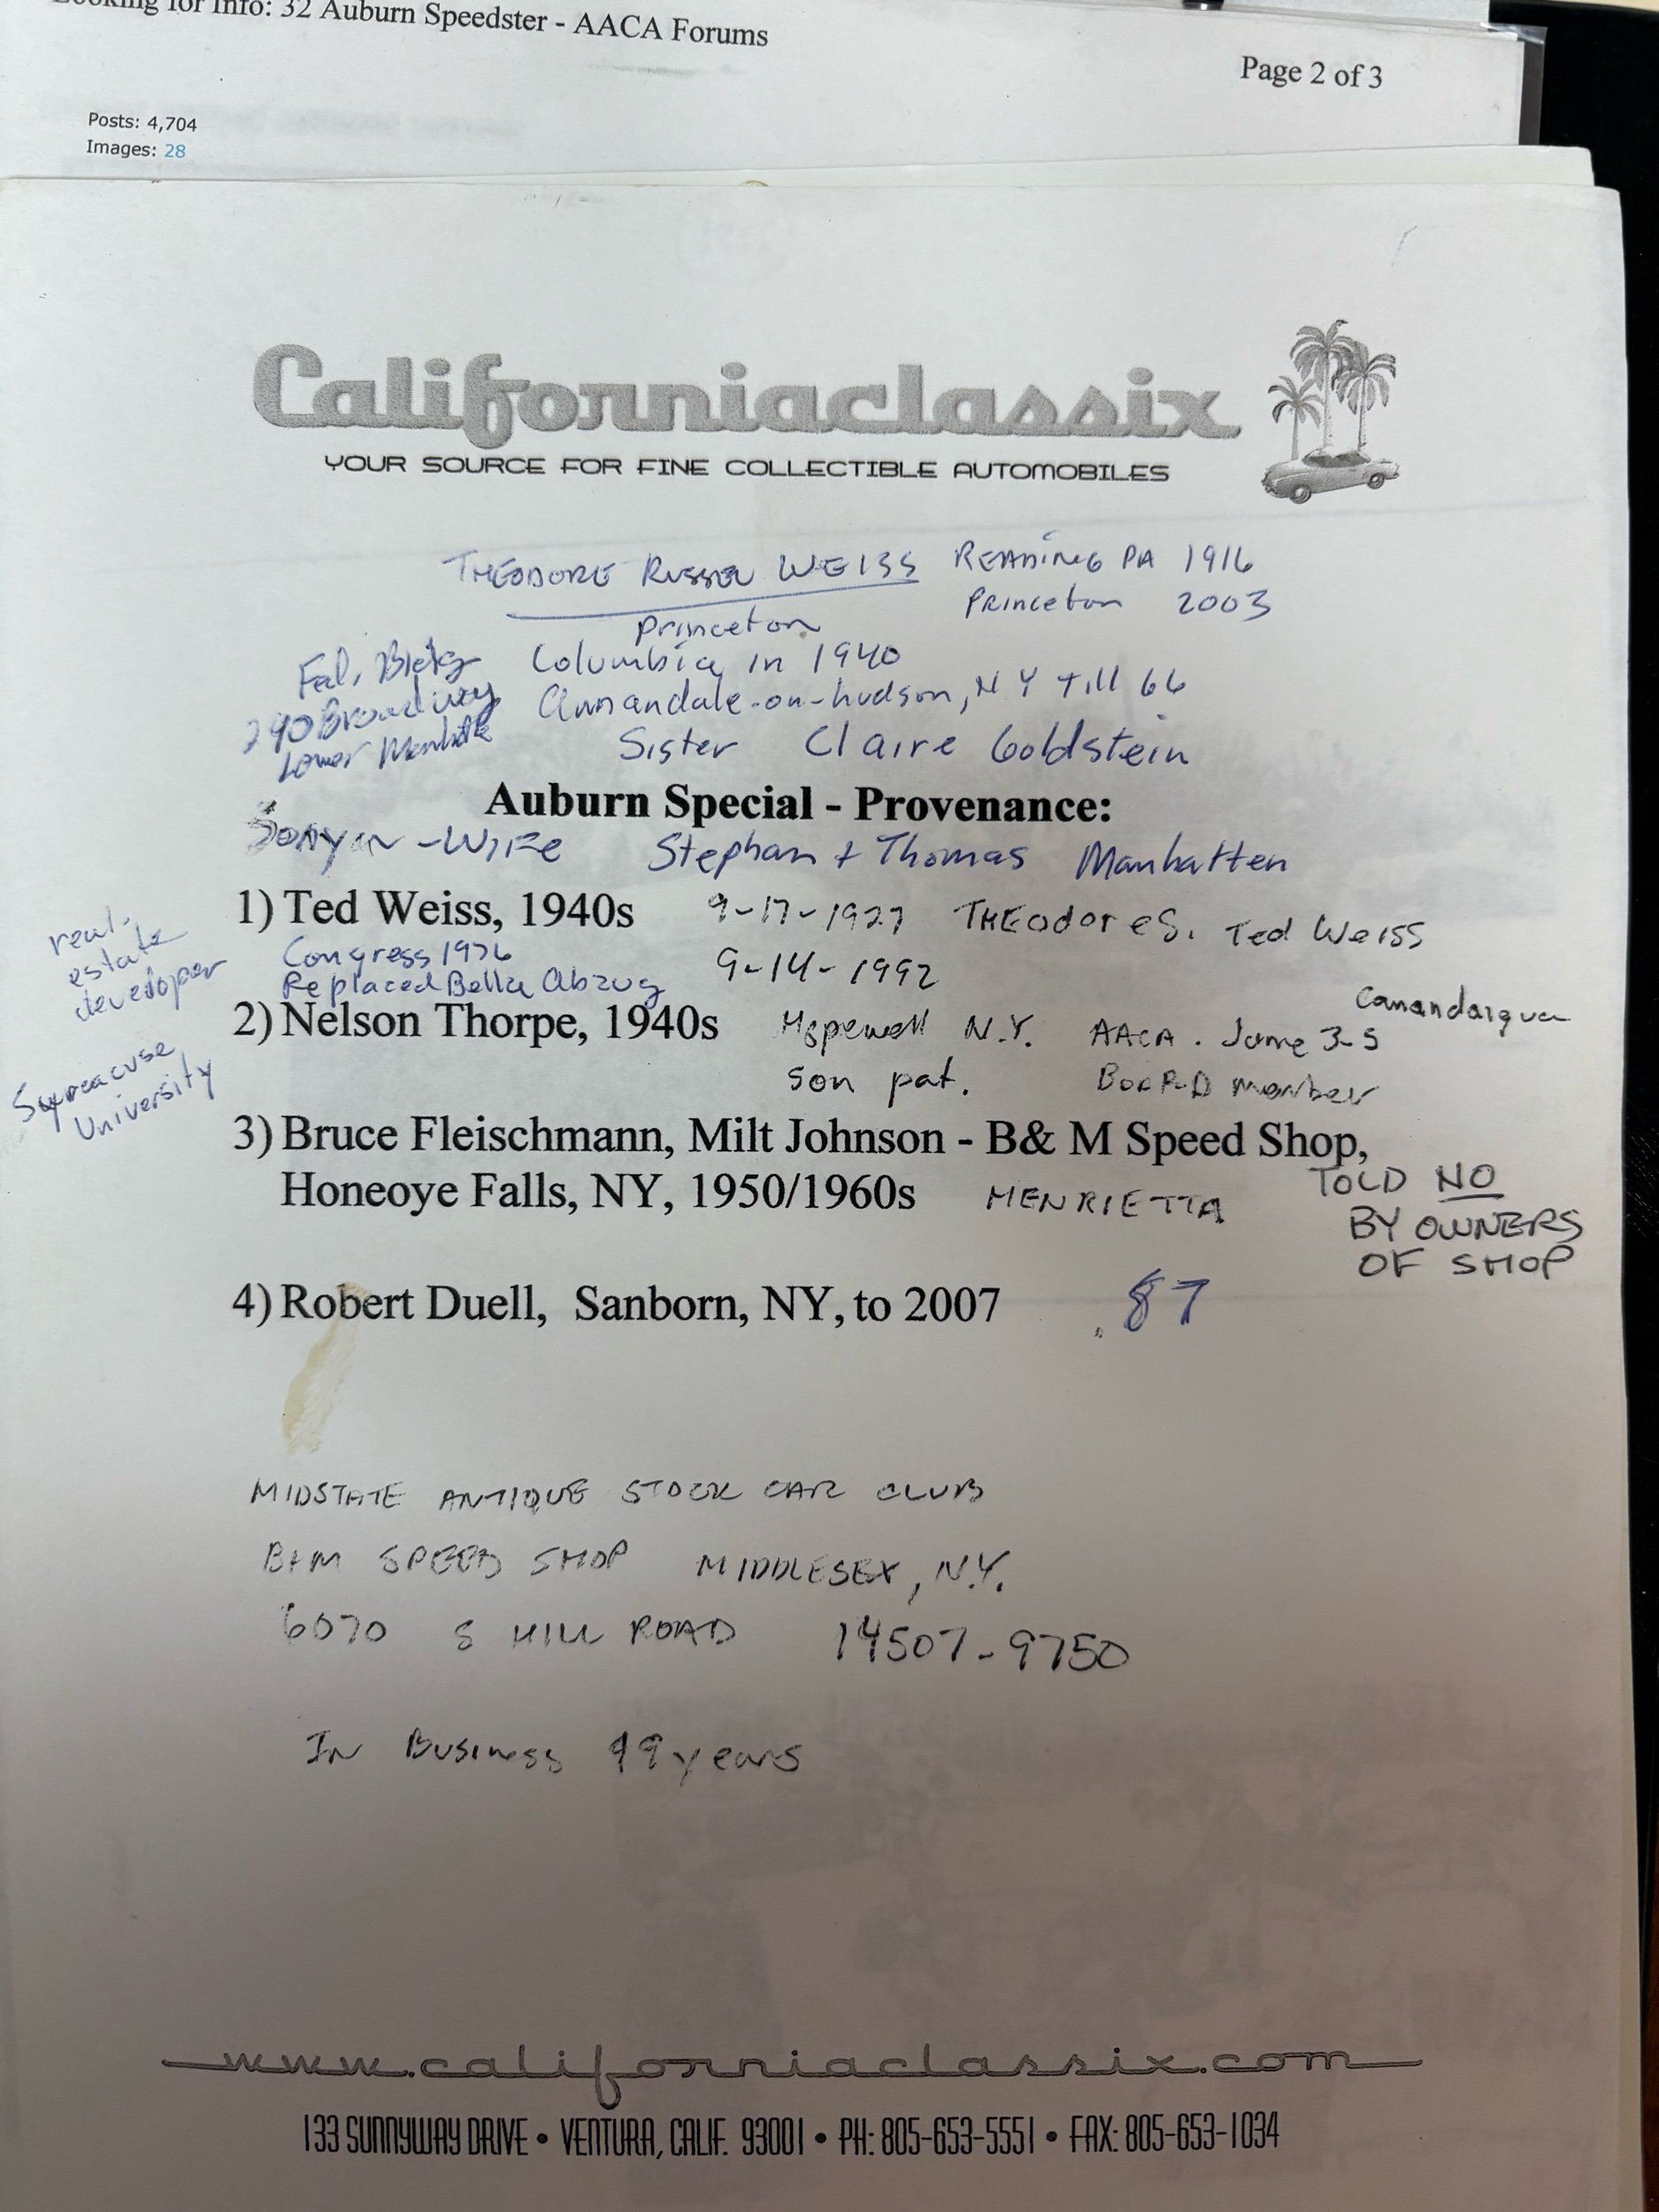 Looking for Info: 32 Auburn Speedster - AACA Forums
Page 2 of 3
Posts: 4,704
Images: 28
Californiaclassix
YOUR SOURCE FOR FINE COLLECTIBLE AUTOMOBILES
THEODORE RUSSELL WEISS READING PA 1916
Princeton 2003
Princeton
Columbia in 1940
Annandale-on-hudson, NY Till 66
Fed. Bldg
290 Broadway
Lower Manhattan
Sister Claire Goldstein
Auburn Special - Provenance:
-Wife Stephan + Thomas Manhatten
1) Ted Weiss, 1940s 9-17-1927 THEodore S. Ted Weiss
Congress 1976 9-14-1992
Replaced Bella Abzug
real-
estate
developer
2) Nelson Thorpe, 1940s Hopewell N.Y. AACA. June 3-5 Canandaigua
son pat. BOARD member
Syracuse
University
3) Bruce Fleischmann, Milt Johnson - B& M Speed Shop,
Honeoye Falls, NY, 1950/1960s HENRIETTA
TOLD NO
BY OWNERS
OF SHOP
4) Robert Duell, Sanborn, NY, to 2007 87
MIDSTATE ANTIQUE STOCK CAR CLUB
B+M SPEED SHOP MIDDLESEX, N.Y.
6070 S HILL ROAD 14507-9750
In Business 49 years
www.californiaclassix.com
133 SUNNYWAY DRIVE • VENTURA, CALIF. 93001 • PH: 805-653-5551 • FAX: 805-653-1034